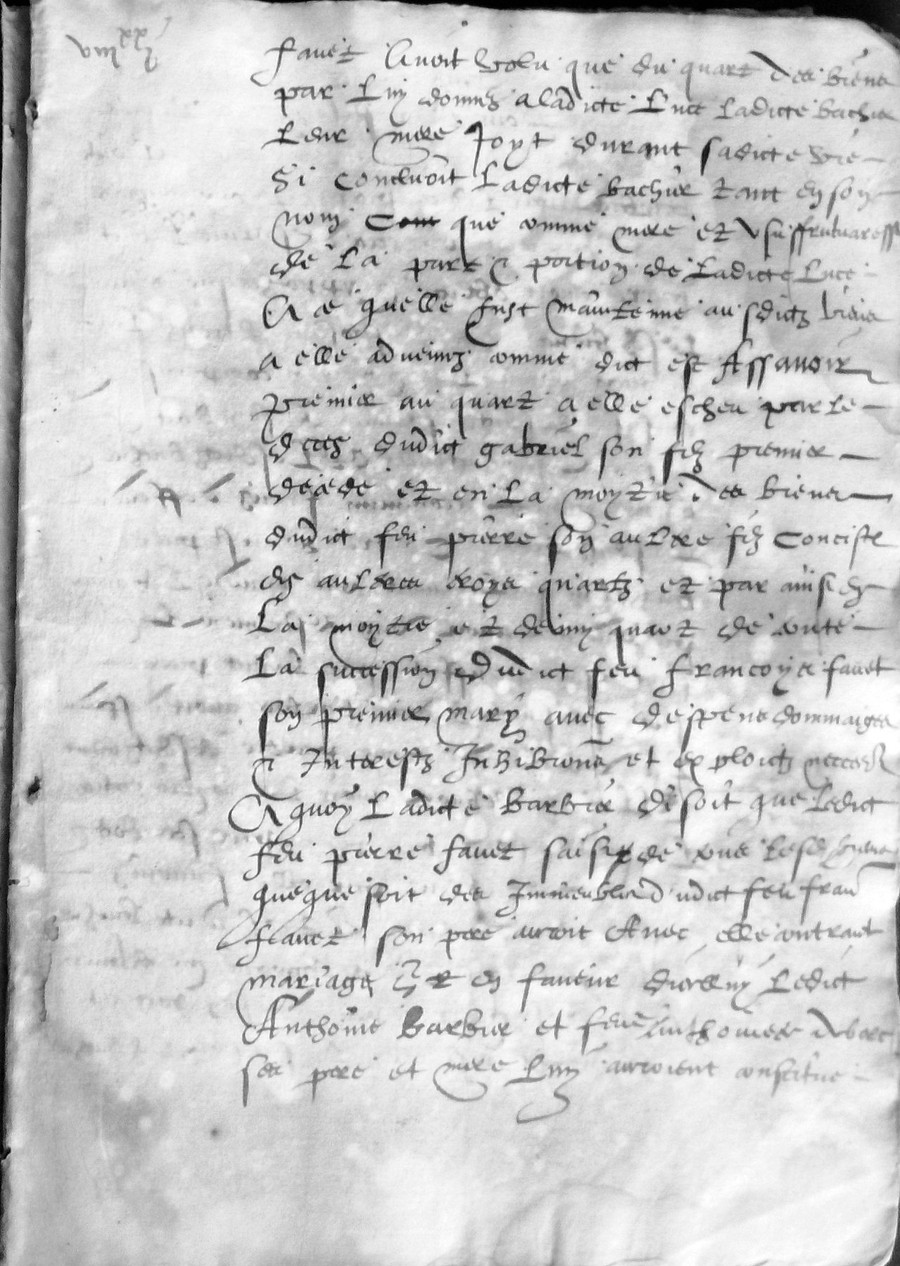 viii xx i
favet Avoit volu que du quart des biens
par luy donnes a ladicte Luce ladicte bachier
leur mere Joyt durant sadicte vie
Si concluoit Ladicte bachier tant en son
nom que comme mere et Usuffrutuaresse
de La part & portion de Ladicte Luce
A ce quelle fust mainteinue ausdictz biens
a elle adveinuz comme dict est Assavoir
premier au quart a elle escheu par le
deces dudict gabriel son filz premier
decede et en La moytie des biens
dudict feu pierre son aultre filz Conciste
en aultres troys quartz et par ainsi en
La moytie et demy quart de toute
La succession dudict feu francoys favet
son premier mary avec despens dommaiges
& Interestz Inhibitions et exploictz neccess
A quoy Ladicte Barbier disoit que Ledict
feu pierre favet saisi de tous lesd biens
queque soit des Immeubles dudict feu fran
favet son pere auroit Avec elle contraict
mariage et en faveur dicelluy Ledict
Anthoine Barbier et feue Anthoinete
ses pere et mere Luy auroient constitue